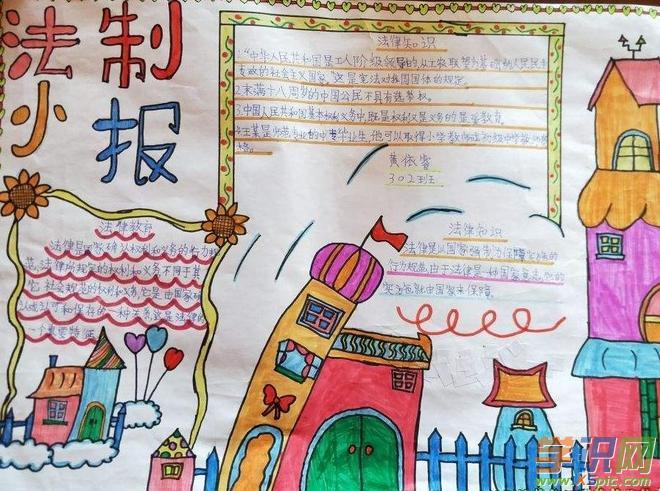 法制
小报
法律知识
1."中华人民共和国是工人阶级领导的以工农联盟为基础的人民民主
专政的社会主义国家"这是宪法对我国国体的规定。
2.未满十八周岁的中国公民不具有选举权。
3.中国人民共和国基本权利义务中,既是权利又是义务的是受教育。
4.王某是师范专业的中专毕业生,他可以取得小学教师或初级中学教师资
格。
黄依
302班
法律教育
法律是国家确认权利和义务的行为规
范,法律所规定的权利和义务不同于其
它社会规范的权利和义务,它是由国家确
认或认可和保存的一种关系,这是法律的
一个重要特征。
法律知识
法律是以国家强制力保障实施的
行为规范,由于法律是一种国家意志,它的
实施就由国家来保障。
学识网
XSpic.com